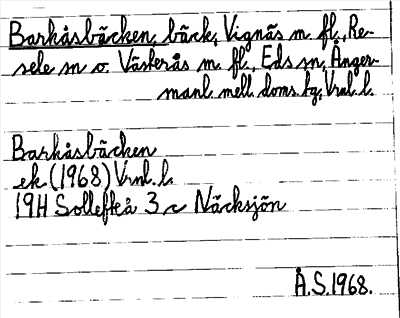 Barkåsbäcken, bäck, Vignäs m. fl., Re-
sele sn o. Västerås m. fl., Eds sn, Ånger-
manl. mell. doms. tg, Vrnl. l.
Barkåsbäcken
ek. (1968) Vrnl. l.
19H Sollefteå 3 c Näcksjön
Å.S. 1968.